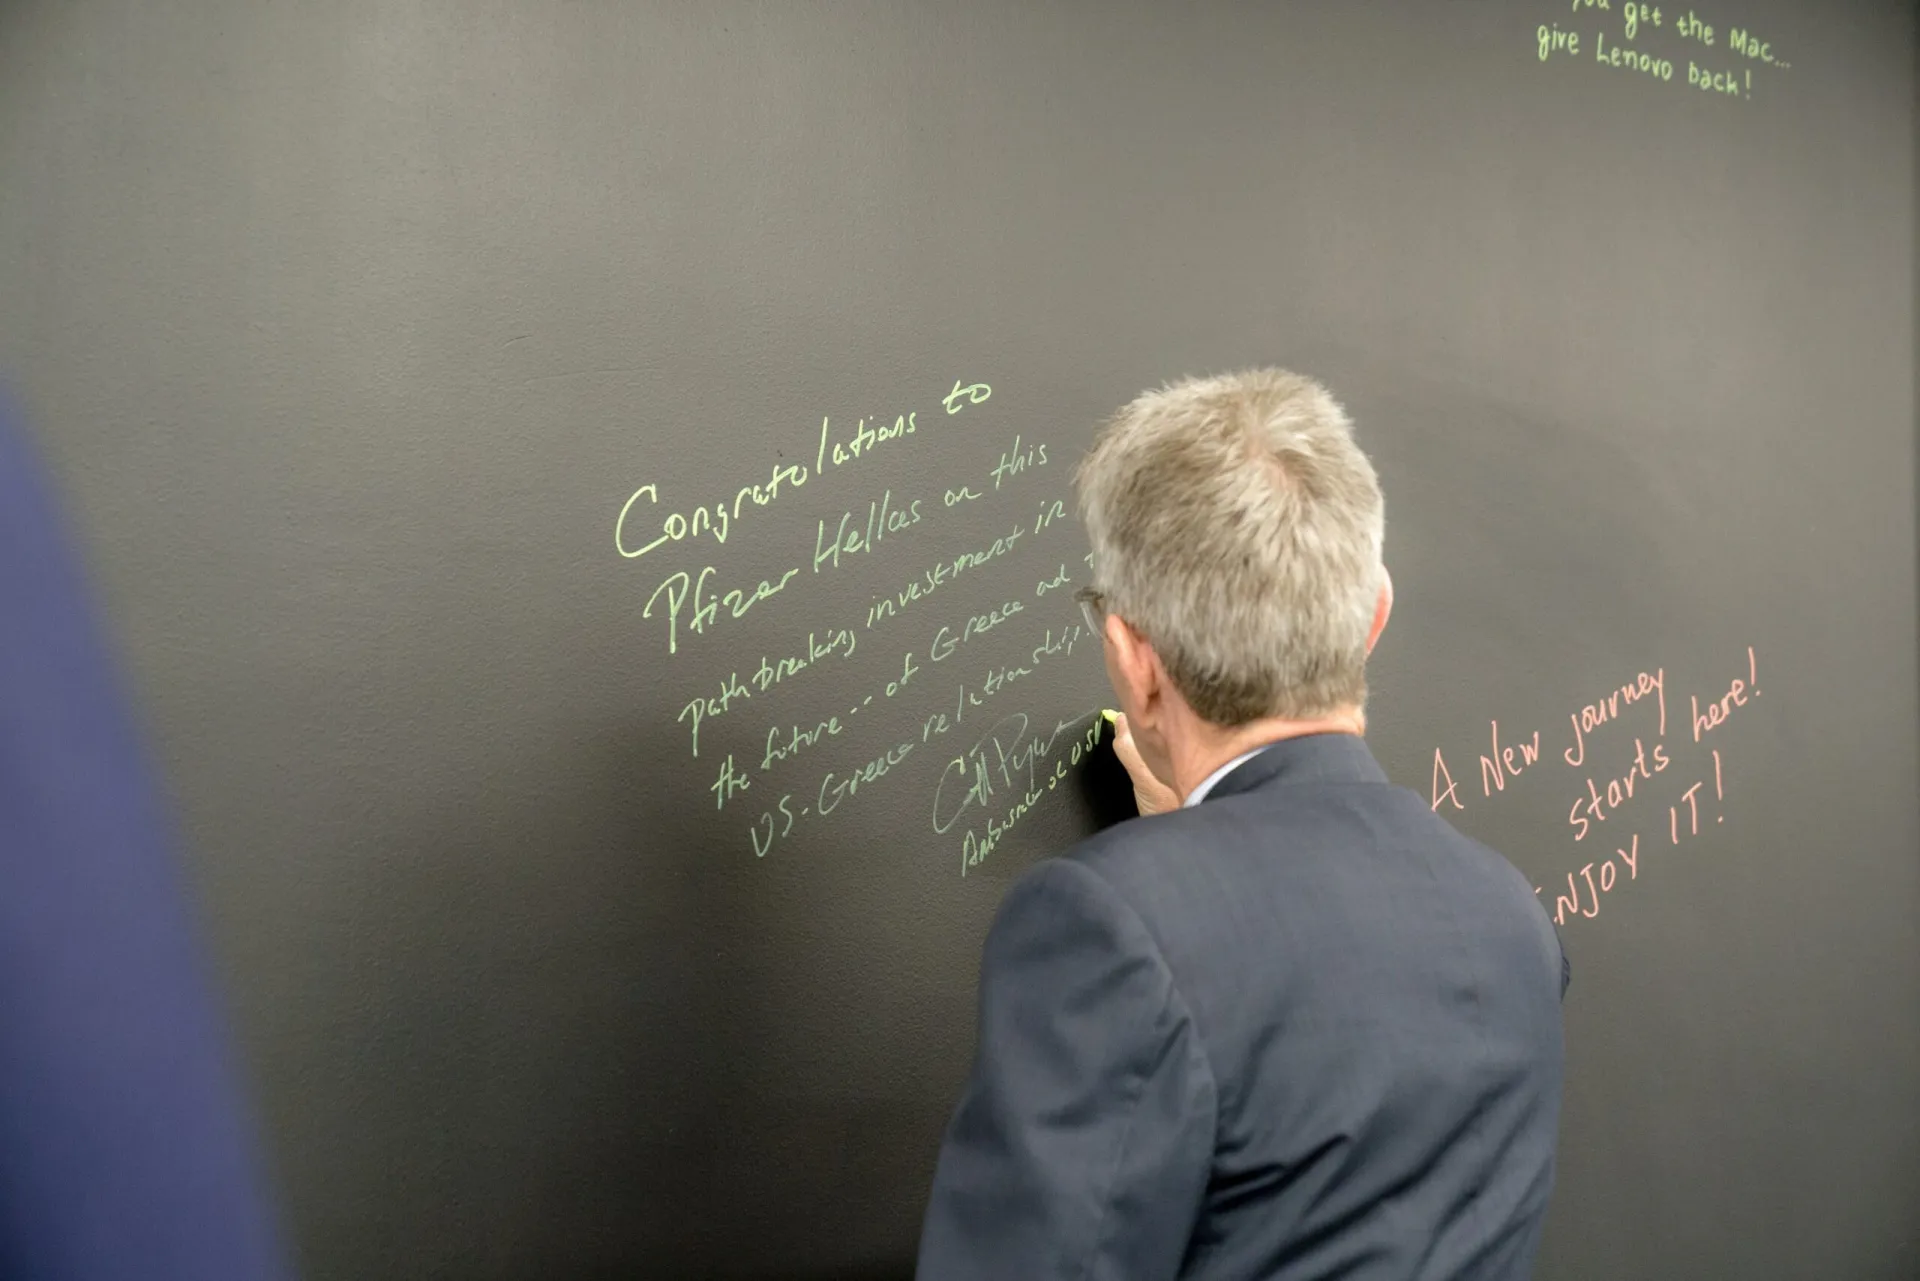 you get the Mac...
give Lenovo back!
Congratulations to
Pfizer Hellas on this
pathbreaking investment in
the future -- of Greece and
US-Greece relationship.
A New journey
starts here!
ENJOY IT!